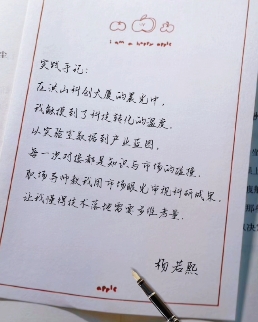 I am a happy apple
实践手记：
在洪山科创大厦的晨光中，
我触摸到了科技转化的温度。
从实验室数据到产业蓝图，
每一次对接都是知识与市场的碰撞。
职场导师教我用市场眼光审视科研成果，
让我懂得技术落地需要多维考量。
杨若熙
apple